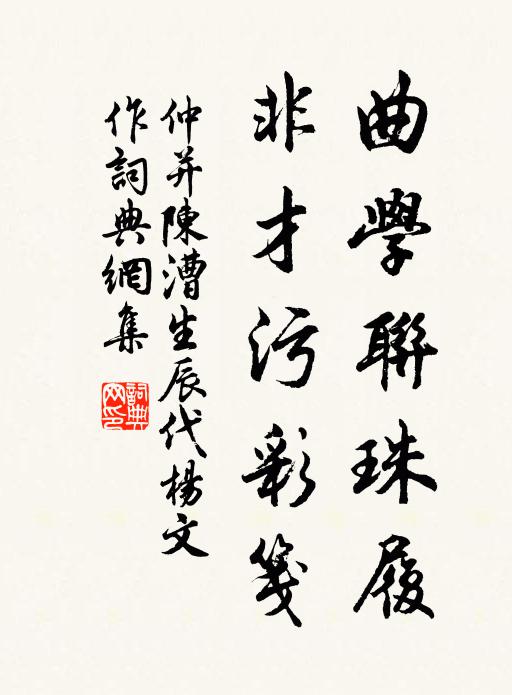 曲學聯珠履
非才污彩箋
仲并陳漕生辰代楊文
作詞典網集
詞典網印